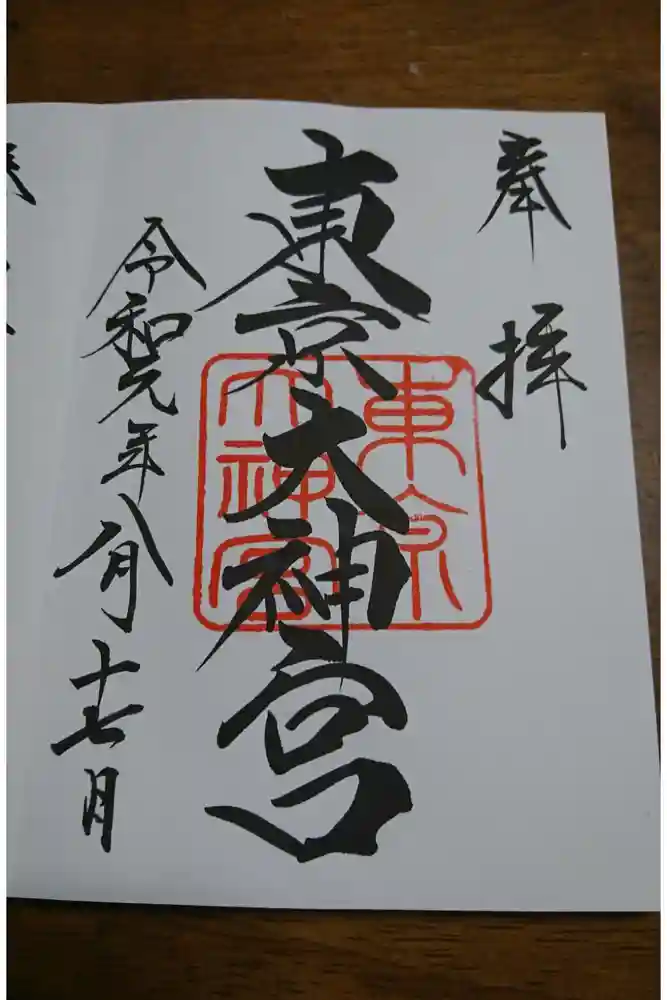 奉拝
東京大神宮
東京
大神宮
令和元年八月十七日